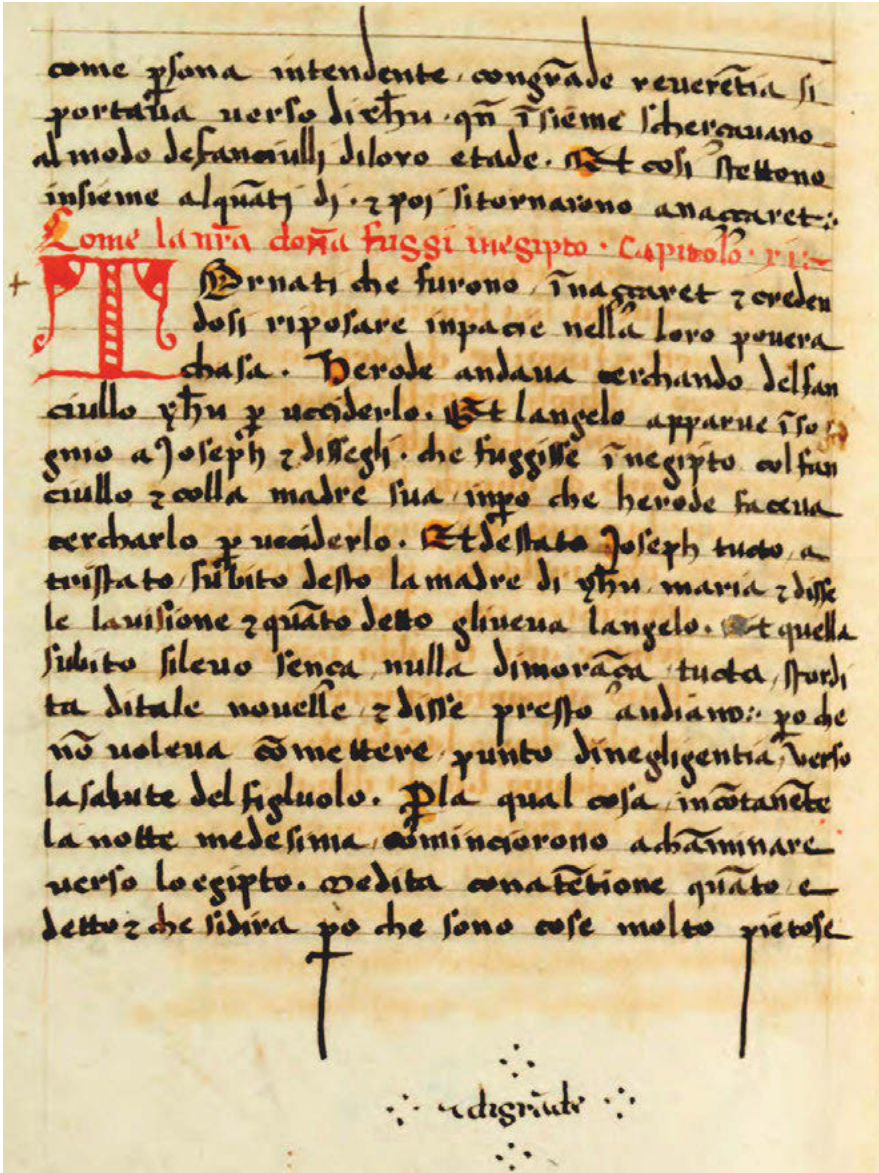 come p̱sona intendente, congrāde reuerētia si
portaua uerso di yħu. qn̄ īsieme schercauano
al modo defanciulli diloro etade. Et cosi stettono
insieme alquāti di. ⁊ poi sitornarono anaccaret:.
Come la nr̄a doña fuggi inegipto. Capitolo. xi:~
TOrnati che furono, īnaccaret ⁊ creden
dosi riposare inpacie nella loro pouera
chasa. Herode andaua cerchando delfan
ciullo yħu p̱ ucciderlo. Et langelo apparue īso
gnio a Joseph ⁊ dissegli. che fuggisse īnegipto colfan
ciullo ⁊ colla madre sua, inp̱o che herode faceua
cercharlo p̱ ucciderlo. Et destato Joseph tucto, a
tristato, subito desto la madre di yħu, maria ⁊ disse
le lauisione ⁊ quāto detto gliueua langelo. Et quella
subito sileuo senca, nulla dimorāca, tucta, stordi
ta ditale nouelle, ⁊ disse presto andiano:. p̱o che
nō uoleua cōmettere, punto dinegligentia, uerso
lasalute del figluolo. P̱la qual cosa, incōtanēte
la notte medesima, cominciorono achāminare
uerso loegipto. Medita conatētione quāto e
detto ⁊ che sidira p̱o che sono cose molto pietose
⁊ digrāde